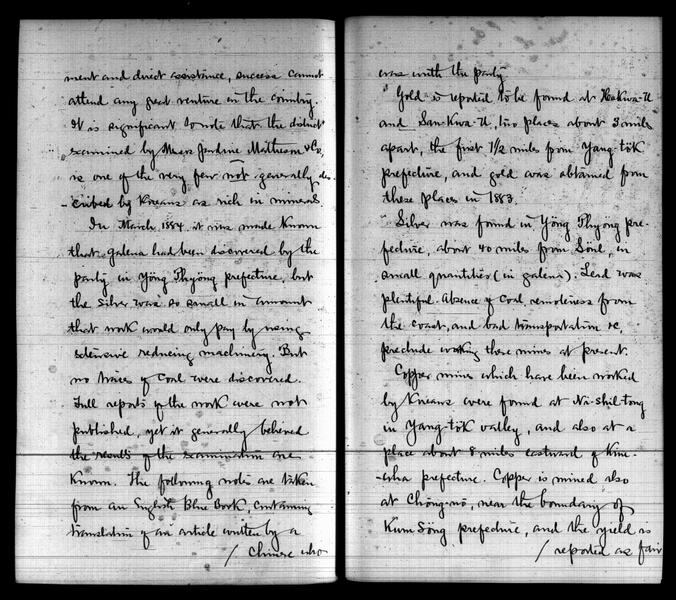 ment and direct assistance, success cannot
attend any great venture in the country.
It is significant to note that the district
examined by Messrs Jardine Matheson & Co,
is one of the very few not generally des-
-cribed by Koreans as rich in minerals.
In March, 1884 it was made known
that galena had been discovered by the
party in Yöng Phyöng prefecture, but
the silver was so small in amount
that work would only pay by using
extensive reducing machinery. But
no traces of coal were discovered.
Full reports of the work were not
published, yet it generally believed
the results of the examination are
known. The following notes are taken
from an English Blue Book, containing
translation of an article written by a
/ Chinese who
was with the party
"Gold is reported to be found at
and San-Kwa-U, two places about 3 miles
apart, the first 1½ miles from Yang-tök
prefecture, and gold was obtained from
these places in 1883.
"Silver was found in Yöng Phyöng pre-
fecture, about 40 miles from Söul, in
small quantities (in galena). Lead was
plentiful. Absence of coal, remoteness from
the coast, and bad transportation &c,
preclude working these mines at present.
Copper mines which have been worked
by Koreans were found at Na-shil-tong
in Yang-tök valley, and also at a
place about 8 miles eastward of Kim-
-wha prefecture. Copper is mined also
at Chöng-nö, near the boundary of
Kum Söng prefecture, and the yield is
/ reported as fair